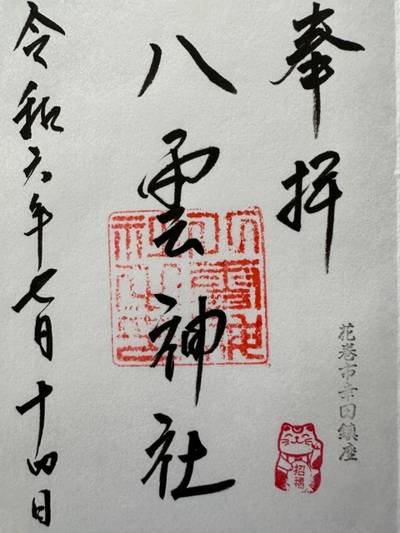 奉拝
八雲神社
花巻市幸田鎮座
招福
令和六年七月十四日